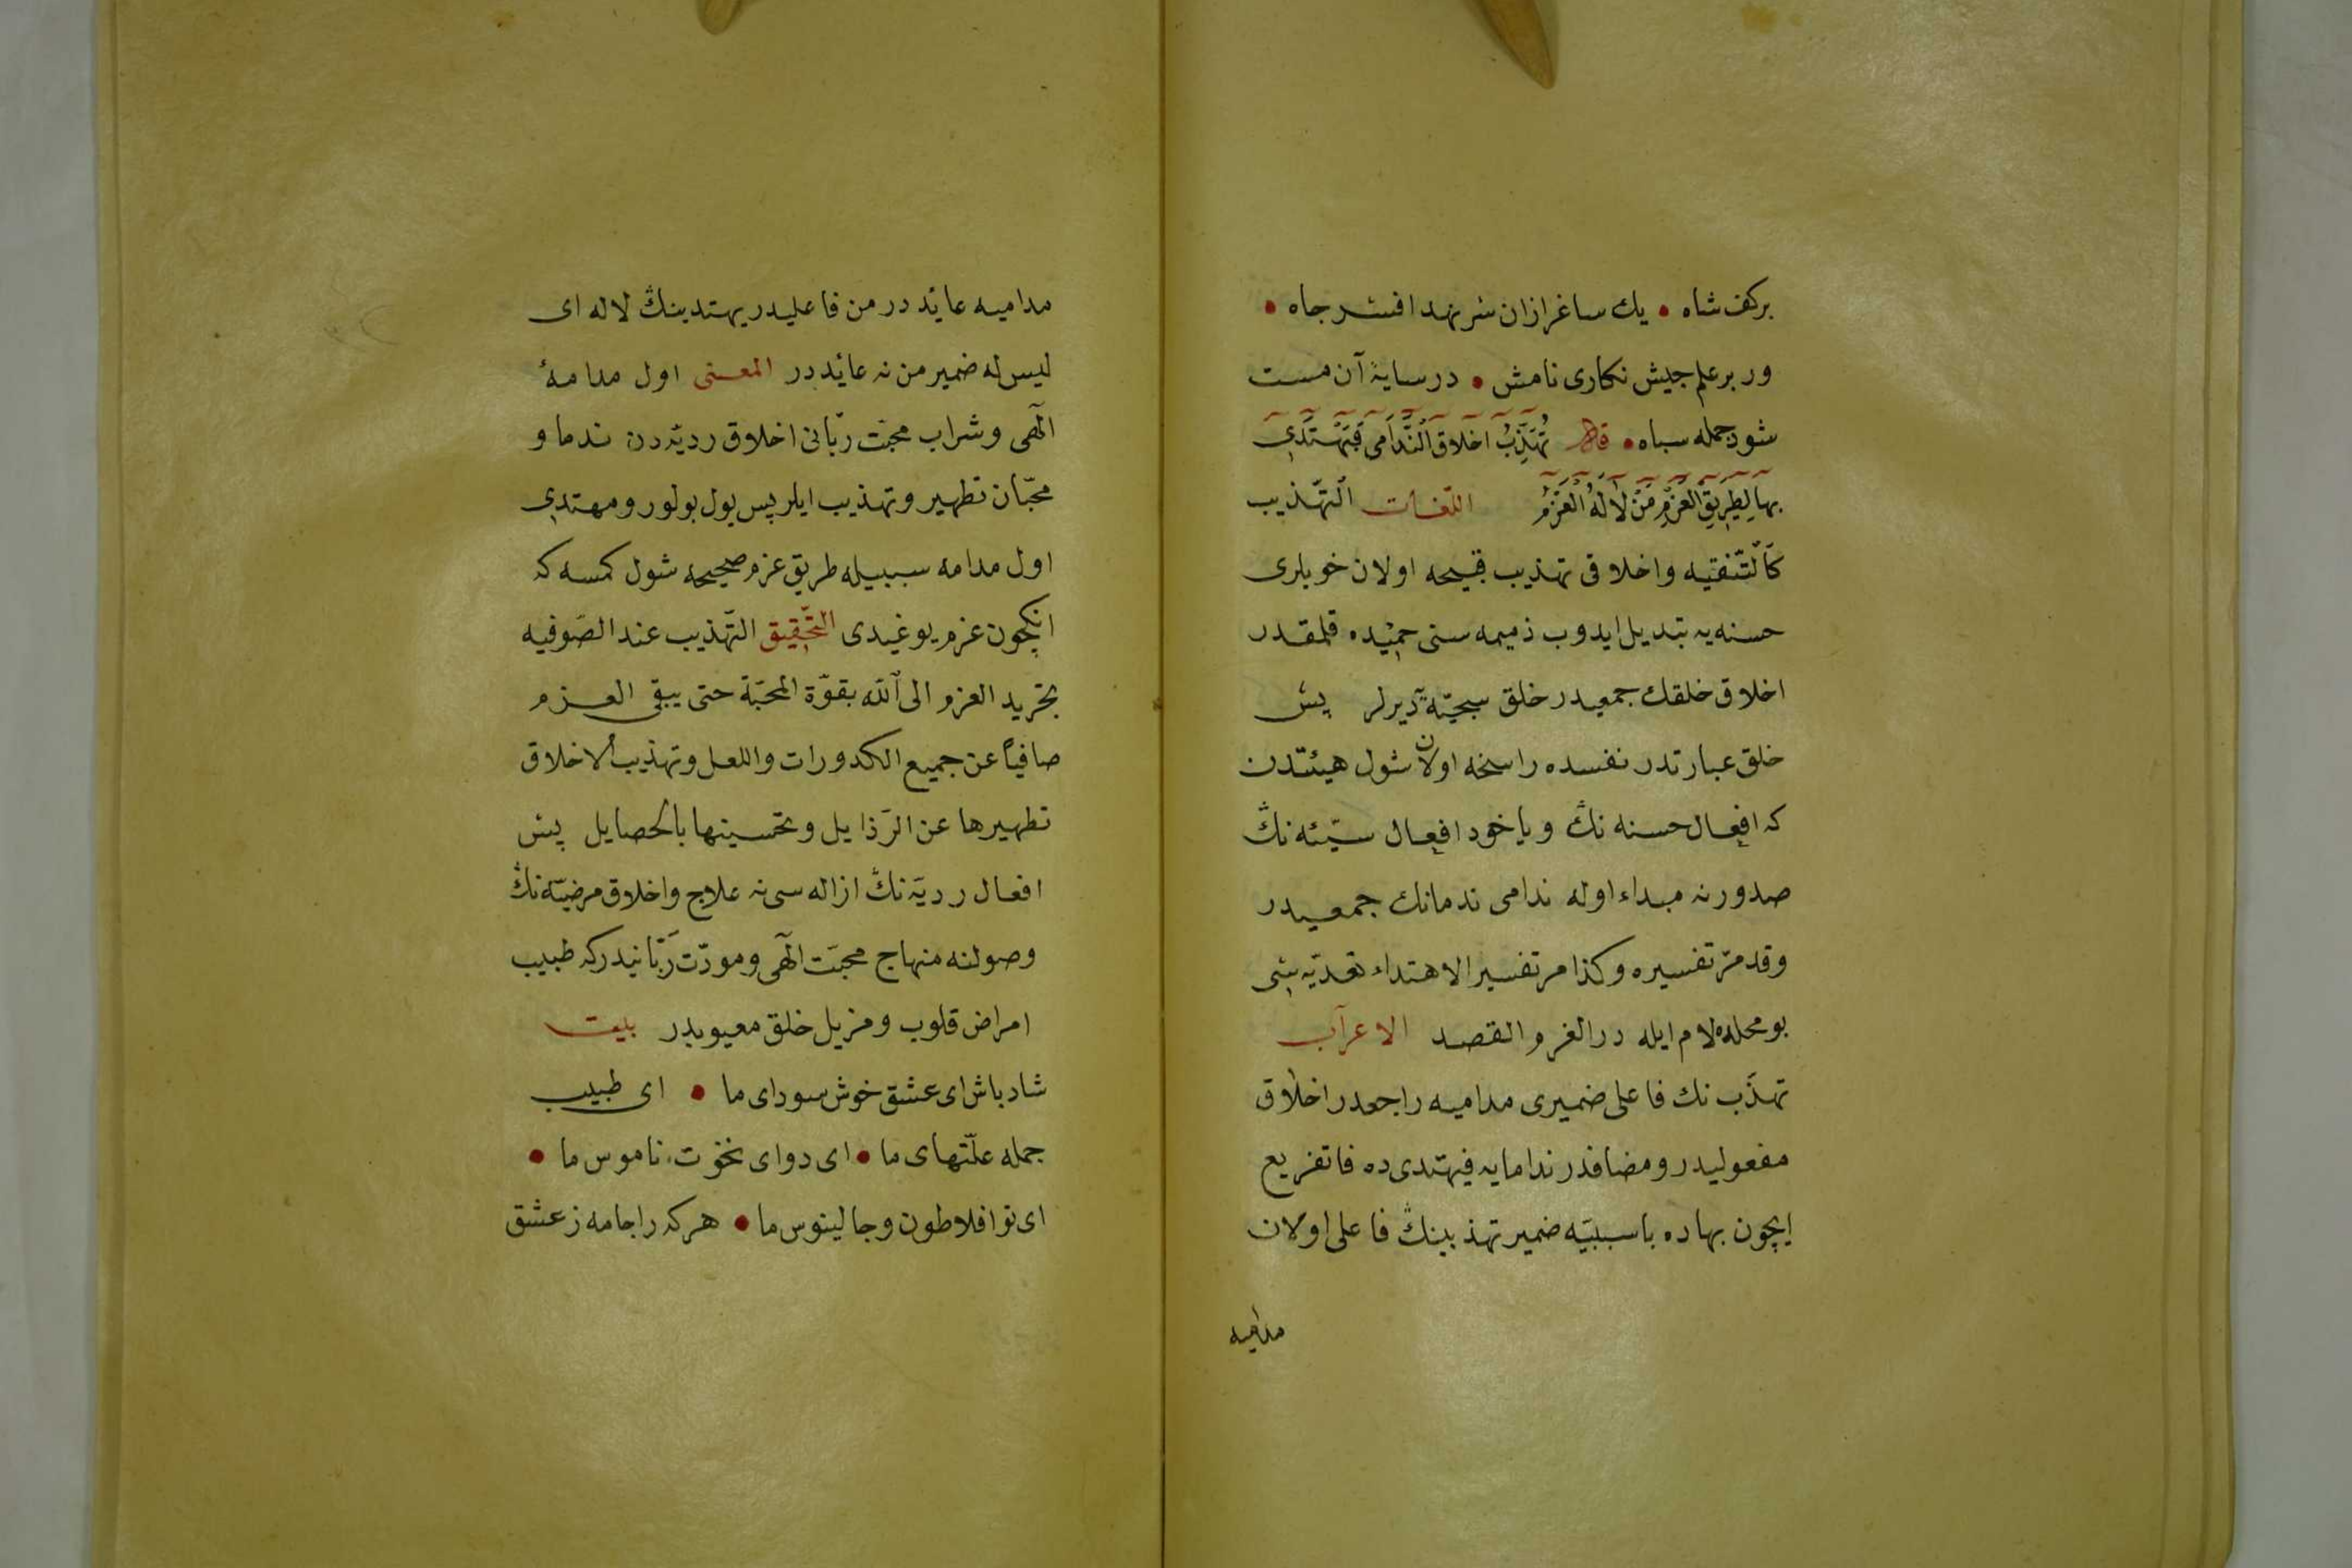 بركف شاه • يك ساغر ازان شر نهد افسر جاه •
ور بر علم جيش نكارى نامش • در سايۀ آن مست
شود جمله سپاه • قال تُهَذِّبُ اخلاق النَّدَامى فَيَهْتَدِي
بها لِطَرِيقِ العَزْمِ مَنْ لاَ لَهُ العَزْمُ اللّغات التّهذيب
كَالتّنقيه واخلاقى تهذيب قبيحه اولان خويلرى
حسنه يه تبديل ايدوب ذميمه سنى حميده قلمقدر
اخلاق خلقك جمعيدر خلق سجيّة ديرلر پس
خلق عبارتدر نفسده راسخه اولان شول هيئتدن
كه افعال حسنه نڭ و ياخود افعال سيّئه نڭ
صدورنه مبداء اوله ندامى ندمانك جمعيدر
وقد مرّ تفسيره وكذا مر تفسير الاهتداء تعديّه سى
بو محلده لام ايله در العزم القصد الاعراب
تهذّب نك فاعلى ضميرى مداميه راجعدر اخلاق
مفعوليدر ومضافدر ندامايه فيهتدى ده فا تفريع
ايچون بها ده با سببيّه ضمير تهذبينڭ فاعلى اولان
مداميه
مداميه عائد در من فاعليدر يهتدينڭ لا له اى
ليس له ضمير من نه عائد در المعنى اول مدامۀ
الٓهى وشراب محبّت ربّانى اخلاق رديّه دن ندما و
محبّان تطهير وتهذيب ايلر پس يول بولور ومهتدى
اول مدامه سببيله طريق عزم صحيحه شول كمسه كه
انكچون عزم يوغيدى التّحقيق التّهذيب عند الصّوفيه
تجريد العزم الى الله بقوّة المحبّة حتى يبقى العزم
صافياً عن جميع الكدورات والعلل وتهذيب الاخلاق
تطهيرها عن الرّذايل وتحسينها بالخصايل پس
افعال رديّه نڭ ازاله سى نه علاج واخلاق مرضيّه نڭ
وصولنه منهاج محبّت الٓهى ومودّت ربّانيدركه طبيب
امراض قلوب ومزيل خلق معيوبدر بيت
شاد باش اى عشق خوش سوداى ما • اى طبيب
جمله علّتهاى ما • اى دواى نخوت ناموس ما •
اى تو افلاطون وجالينوس ما • هركه را جامه ز عشق